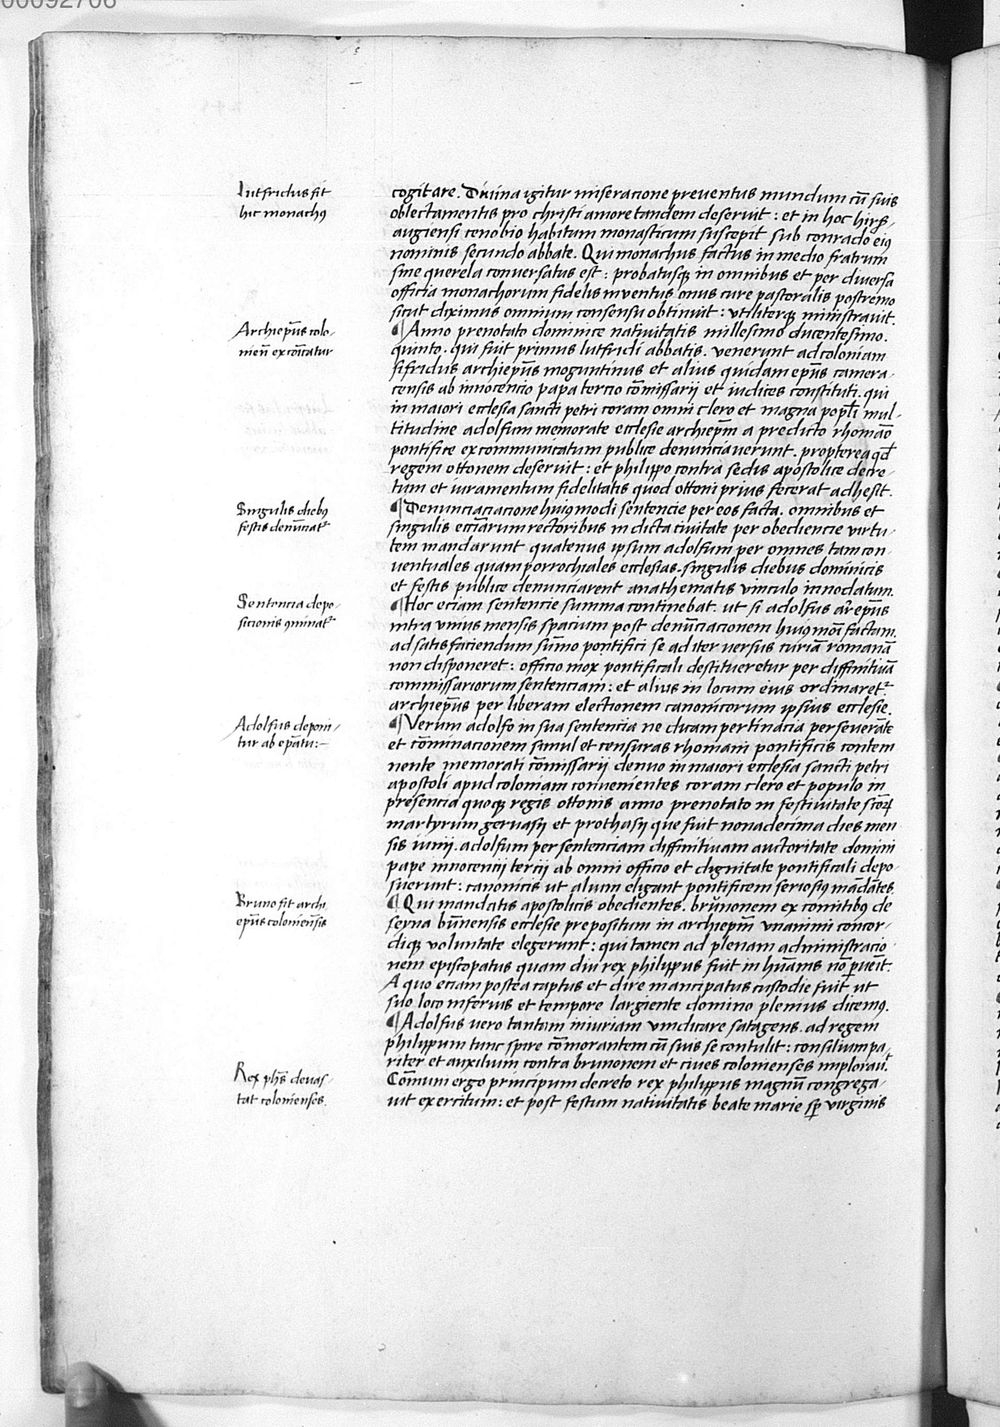 00092706
Lutfridus fit
hic monachꝯ
cogitare. Diuina igitur miseracione preventus mundum cū suis
oblectamentis pro christi amore tandem deseruit : et in hoc hirs-
augiensi cenobio habitum monasticum suscepit sub conrado eiꝯ
nominis secundo abbate. Qui monachus factus in medio fratrum
sine querela conuersatus est : probatusqꝫ in omnibus et per diuersa
officia monachorum fidelis inventus onus cure pastoralis postremo
sicut diximus omnium consensu obtinuit : vtiliterqꝫ ministrauit.
Archiepūs colo-
nieñ excōicatur
¶ Anno prenotato dominice natiuitatis millesimo ducentesimo.
quinto. qui fuit primus lutfridi abbatis. venerunt ad coloniam
sifridus archiepūs moguntinus et alius quidam epūs camera-
censis ab innocencio papa tercio cōmissarij et iudices constituti. qui
in maiori ecclesia sancti petri coram omni clero et magna popłi mul-
titudine adolfum memorate ecclesie archiepm̄ a predicto rhomāo
pontifice excommunicatum publice denunciauerunt. propterea qđ
regem ottonem deseruit : et philippo contra sedis apostolice decre-
tum et iuramentum fidelitatis quod ottoni prius fecerat adhesit.
Singulis diebꝯ
festis denūciatʳ
¶ Denunciacione huiꝯmodi sentencie per eos facta. omnibus et
singulis ecciāꝝ rectoribus in dicta ciuitate per obediencie virtu-
tem mandarunt quatenus ipsum adolfum per omnes tam con-
uentuales quam porrochiales ecclesias. singulis diebus dominicis
et festis publice denunciarent anathematis vinculo innodatum.
Sentencia depo-
sicionis ꝯminatʳ
¶ Hoc eciam sentencie summa continebat. ut si adolfus archiepūs
intra vnius mensis spacium post denūciacionem huiꝯmōi factam.
ad satisfaciendum sūmo pontifici se ad iter versus curiā romanā
non disponeret : officio mox pontificali destitueretur per diffinitiuā
commissariorum sentenciam : et alius in locum eius ordinaretʳ
archiepūs per liberam electionem canonicorum ipsius ecclesie.
Adolfus deponi-
tur ab epātu:-
¶ Verum adolfo in sua sentencia ne dicam pertinacia perseuerāte
et cōminacionem simul et censuras rhomani pontificis contem
nente memorati cōmissarij denuo in maiori ecclesia sancti petri
apostoli apud coloniam conuenientes coram clero et populo in
presencia quoqꝫ regis ottonis anno prenotato in festiuitate sctōꝝ
martyrum geruasij et prothasij que fuit nonadecima dies men
sis iunij. adolfum per sentenciam diffinitiuam auctoritate domini
pape innocencij tercij ab omni officio et dignitate pontificali depo-
suerunt : canonicis ut alium eligant pontificem seriosiꝯ mādātes.
Bruno fit archi
epūs coloniēnsis
¶ Qui mandatis apostolicis obedientes. brūnonem ex comitibꝯ de
seyna būnensis ecclesie prepositum in archiepm̄ vnanimi concor-
diqꝫ voluntate elegerunt : qui tamen ad plenam administracio
nem episcopatus quam diu rex philippus fuit in hūanis nō ꝑuēit.
A quo eciam postea captus et dire mancipatus custodie fuit ut
suo loco inferius et tempore largiente domino plenius dicemꝯ.
¶ Adolfus uero tantam iniuriam vindicare satagens. ad regem
philippum tunc spire cōmorantem cū suis se contulit : consilium pa-
riter et auxilium contra brunonem et ciues colonienses implorauͭ.
Rex phs̄ deuas-
tat colonienses.
Cōmuni ergo principum decreto rex philippus magnū congrega-
uit exercitum : et post festum natiuitatis beate marie sp̄ virginis